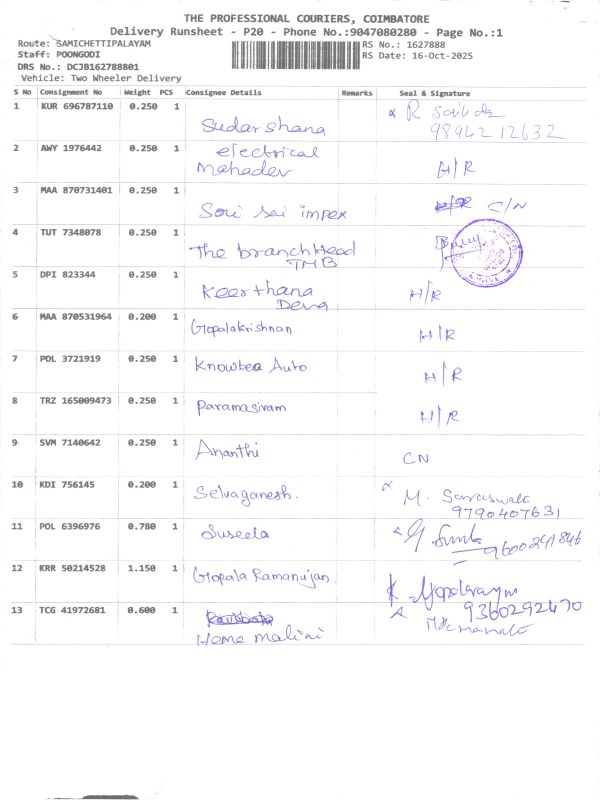 THE PROFESSIONAL COURIERS, COIMBATORE
Delivery Runsheet - P20 - Phone No.:9047080280 - Page No.:1
Route: SAMICHETTIPALAYAM
RS No.: 1627888
Staff: POONGODI
RS Date: 16-Oct-2025
DRS No.: DCJB162788801
Vehicle: Two Wheeler Delivery
S No Consignment No Weight PCS Consignee Details Remarks Seal & Signature
1 KUR 696787110 0.250 1 Sudarshana R
9894212632
2 AWY 1976442 0.250 1 electrical
Mahadev H/R
3 MAA 870731401 0.250 1 Sori sai impex H/R C/N
4 TUT 7348078 0.250 1 The branch Head
TMB
5 DPI 823344 0.250 1 Keerthana
Deva H/R
6 MAA 870531964 0.200 1 Gopalakrishnan H/R
7 POL 3721919 0.250 1 Knowbea Auto H/R
8 TRZ 165009473 0.250 1 Paramasivam H/R
9 SVM 7140642 0.250 1 Ananthi CN
10 KDI 756145 0.200 1 Selvaganesh. M.
9790407631
11 POL 6396976 0.780 1 Suseela
9600241846
12 KRR 50214528 1.150 1 Gopala Ramanujan K.
9360292470
13 TCG 41972681 0.600 1
Heme malini